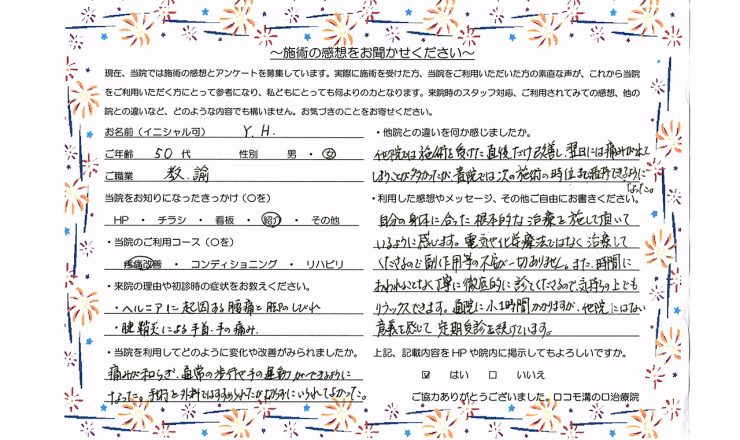 ～施術の感想をお聞かせください～
現在、当院では施術の感想とアンケートを募集しています。実際に施術を受けた方、当院をご利用いただいた方の素直な声が、これから当院
をご利用いただく方にとって参考になり、私どもにとっても何よりの力となります。来院時のスタッフ対応、ご利用されてみての感想、他の
院との違いなど、どのような内容でも構いません。お気づきのことをお寄せください。
お名前（イニシャル可） Y. H.
ご年齢 50 代 性別 男 ・ 女
ご職業 教諭
当院をお知りになったきっかけ（〇を）
HP ・ チラシ ・ 看板 ・ 紹介 ・ その他
・当院のご利用コース（〇を）
疼痛改善 ・ コンディショニング ・ リハビリ
・来院の理由や初診時の症状をお教えください。
・ヘルニアに起因する腰痛と脚のしびれ
・腱鞘炎による手首・手の痛み
・当院を利用してどのように変化や改善がみられましたか。
痛みが和らぎ、通常の歩行や手の運動ができるように
なった。手術を外科ではすすめられたが切らずにいられてよかった。
・他院との違いを何か感じましたか。
他院では施術を受けた直後だけ改善し、翌日には痛みが出て
しまうことが多かったが、貴院では次の施術の時位まで維持できるように
なった。
・利用した感想やメッセージ、その他ご自由にお書きください。
自分の身体に合った根本的な治療を施して頂いて
いるように感じます。電気や化学療法ではなく治療して
くださるので副作用等の不安が一切ありません。また、時間に
おわれることなく丁寧に徹底的に診てくださるので気持ちの上でも
リラックスできます。通院に小1時間かかりますが、他院にはない
意義を感じて定期受診を続けています。
上記、記載内容をHPや院内に掲示してもよろしいですか。
☑ はい □ いいえ
ご協力ありがとうございました。ロコモ溝の口治療院